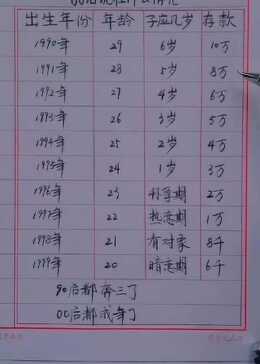 出生年份 年龄 子应几岁 存款
1990年 29 6岁 10万
1991年 28 5岁 8万
1992年 27 4岁 6万
1993年 26 3岁 5万
1994年 25 2岁 4万
1995年 24 1岁 3万
1996年 23 怀孕期 2万
1997年 22 热恋期 1万
1998年 21 有对象 8千
1999年 20 暗恋期 6千
90后都奔三了
00后都成年了